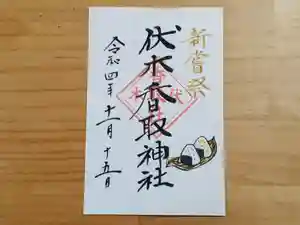 新嘗祭
伏木香取神社
令和四年十一月十五日